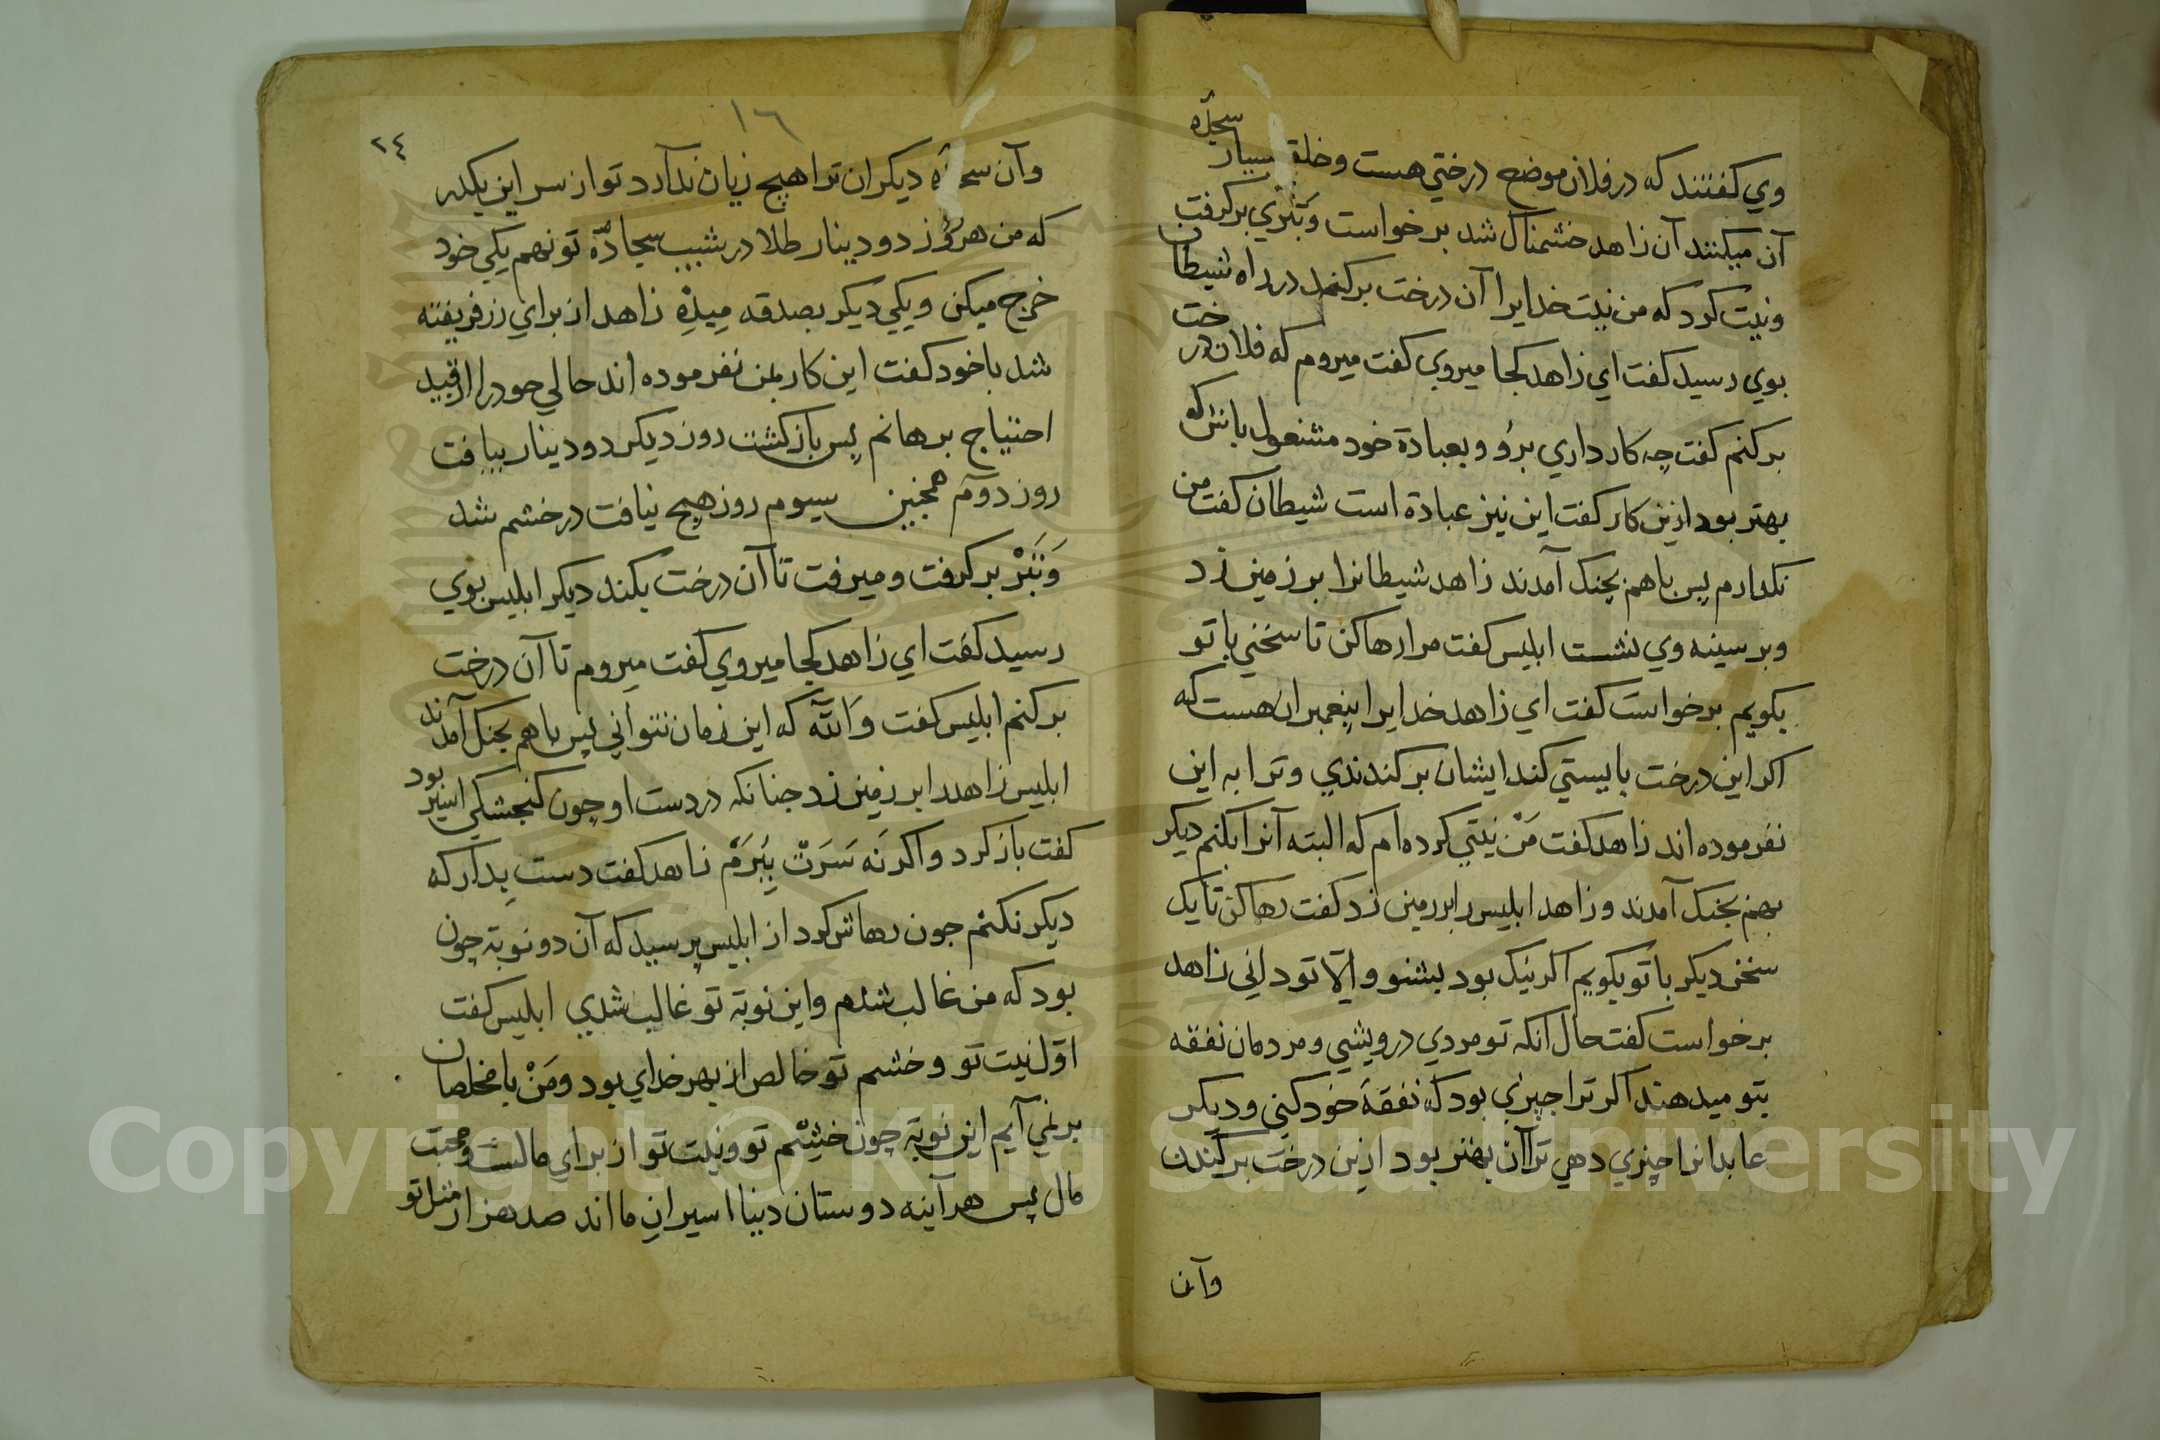 وي كفتند كه در فلان موضع درختي هست وخلق بسيار سجدۀ
آن ميكنند آن زاهد خشمناك شد برخواست وتبري بركرفت
ونيت كرد كه من نيت خدايرا آن درخت بركنم در راه شيطان
بوي رسيد كفت اي زاهد كجا ميروي كفت ميروم كه فلان درخت
بركنم كفت چه كار داري برو وبعبادة خود مشغول باش كه
بهتر بود ازين كار كفت اين نيز عبادة است شيطان كفت من
نكذارم پس باهم بجنك آمدند زاهد شيطانرا بر زمين زد
وبر سينه وي نشست ابليس كفت مرا رها كن تا سخني با تو
بكويم برخواست كفت اي زاهد خدايرا پيغمبران هست كه
اكر اين درخت بايستي كند ايشان بركندندي وترا به اين
نفرموده اند زاهد كفت من نيتي كرده ام كه البته آنرا بكنم ديكر
بهم بجنك آمدند وزاهد ابليس را بر زمين زد كفت رها كن تا يك
سخن ديكر با تو بكويم اكر نيك بود بشنو والا تو داني زاهد
برخواست كفت حال آنكه تو مردي درويشي ومردمان نفقه
بتو ميدهند اكر ترا چيزي بود كه نفقۀ خود كني وديكر
عابدانرا چيزي دهي ترا آن بهتر بود ازين درخت بركندن
وآن
٢٤
١٦
وآن سجدۀ ديكران ترا هيچ زيان ندارد تو از سر اين بكذر
كه من هر روز دو دينار طلا در شيب سجادۀ تو نهم يكي خود
خرج ميكن ويكي ديكر بصدقه ميده زاهد از براي زر فريفته
شد با خود كفت اين كار بمن نفرموده اند حالي خود را از قيد
احتياج برهانم پس باز كشت روز ديكر دو دينار بيافت
روز دوم همچنين سيوم روز هيچ نيافت در خشم شد
وتبر بركرفت وميرفت تا آن درخت بكند ديكر ابليس بوي
رسيد كفت اي زاهد كجا ميروي كفت ميروم تا آن درخت
بركنم ابليس كفت والله كه اين زمان نتواني پس باهم بجنك آمدند
ابليس زاهد را بر زمين زد چنانكه در دست او چون كنجشكي اسير بود
كفت باز كرد واكر نه سرت ببرم زاهد كفت دست بدار كه
ديكر نكنم چون رهاش كرد از ابليس پرسيد كه آن دو نوبة چون
بود كه من غالب شدم واين نوبة تو غالب شدي ابليس كفت
اول نيت تو وخشم تو خالص از بهر خداي بود ومن با مخلصان
بر نمي آيم اين نوبة چون خشم تو ونيت تو از براي مالست ومحبت
مال پس هر آينه دوستان دنيا اسيران ما اند صد هزار مثل تو
Copyright © King Saud University